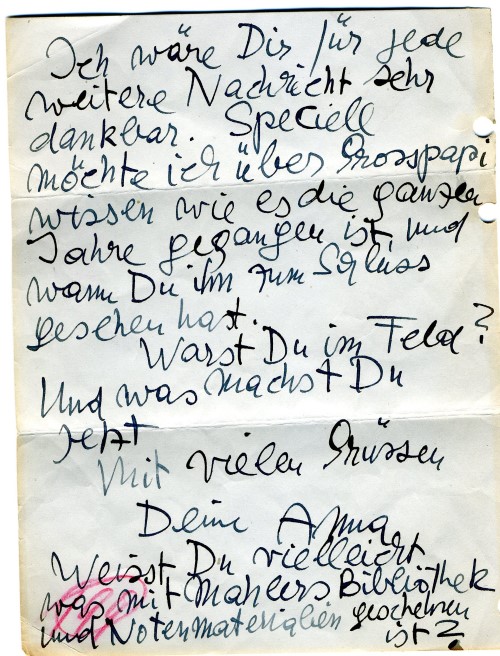 Ich wäre Dir für jede
weitere Nachricht sehr
dankbar. Speciell
möchte ich über Grosspapi
wissen wie es die ganzen
Jahre gegangen ist, und
wann Du ihn zum Schluss
gesehen hast.
Warst Du im Feld?
Und was machst Du
Jetzt
Mit vielen Grüssen
Deine Anna
Weisst Du vielleicht
was mit Mahlers Bibliothek
und Notenmaterialien geschehen
ist?